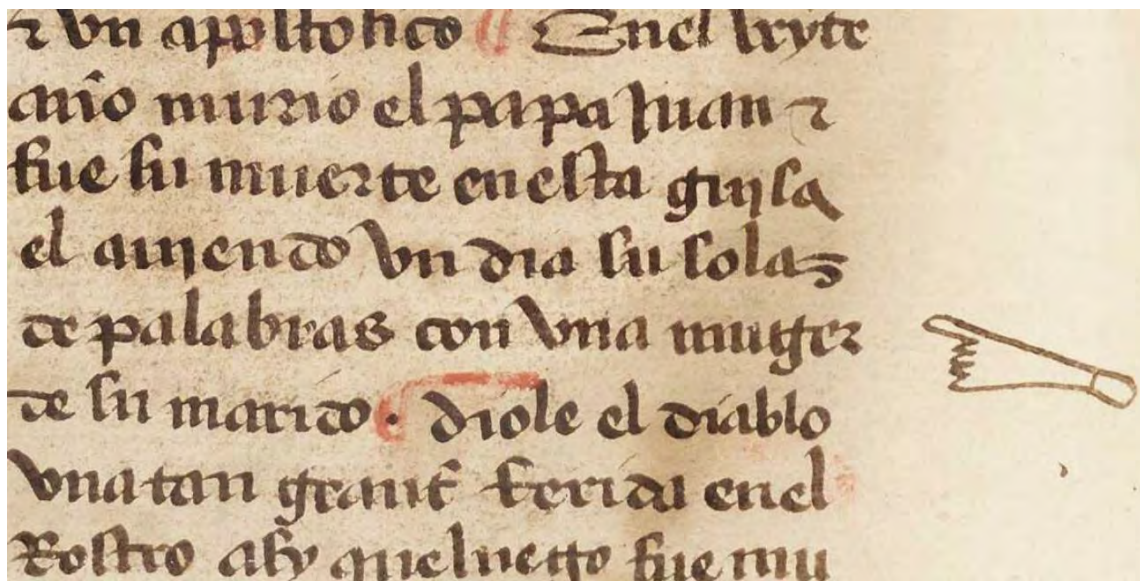 ⁊ vn apostolico ¶ Enel veyte
año murio el papa iuan ⁊
fue su muerte en esta guisa
el auiendo vn dia su solas
de palabras con vna muger
de su marido. diole el diablo
vna tan grant ferida enel
Rostro asy que luego fue mu